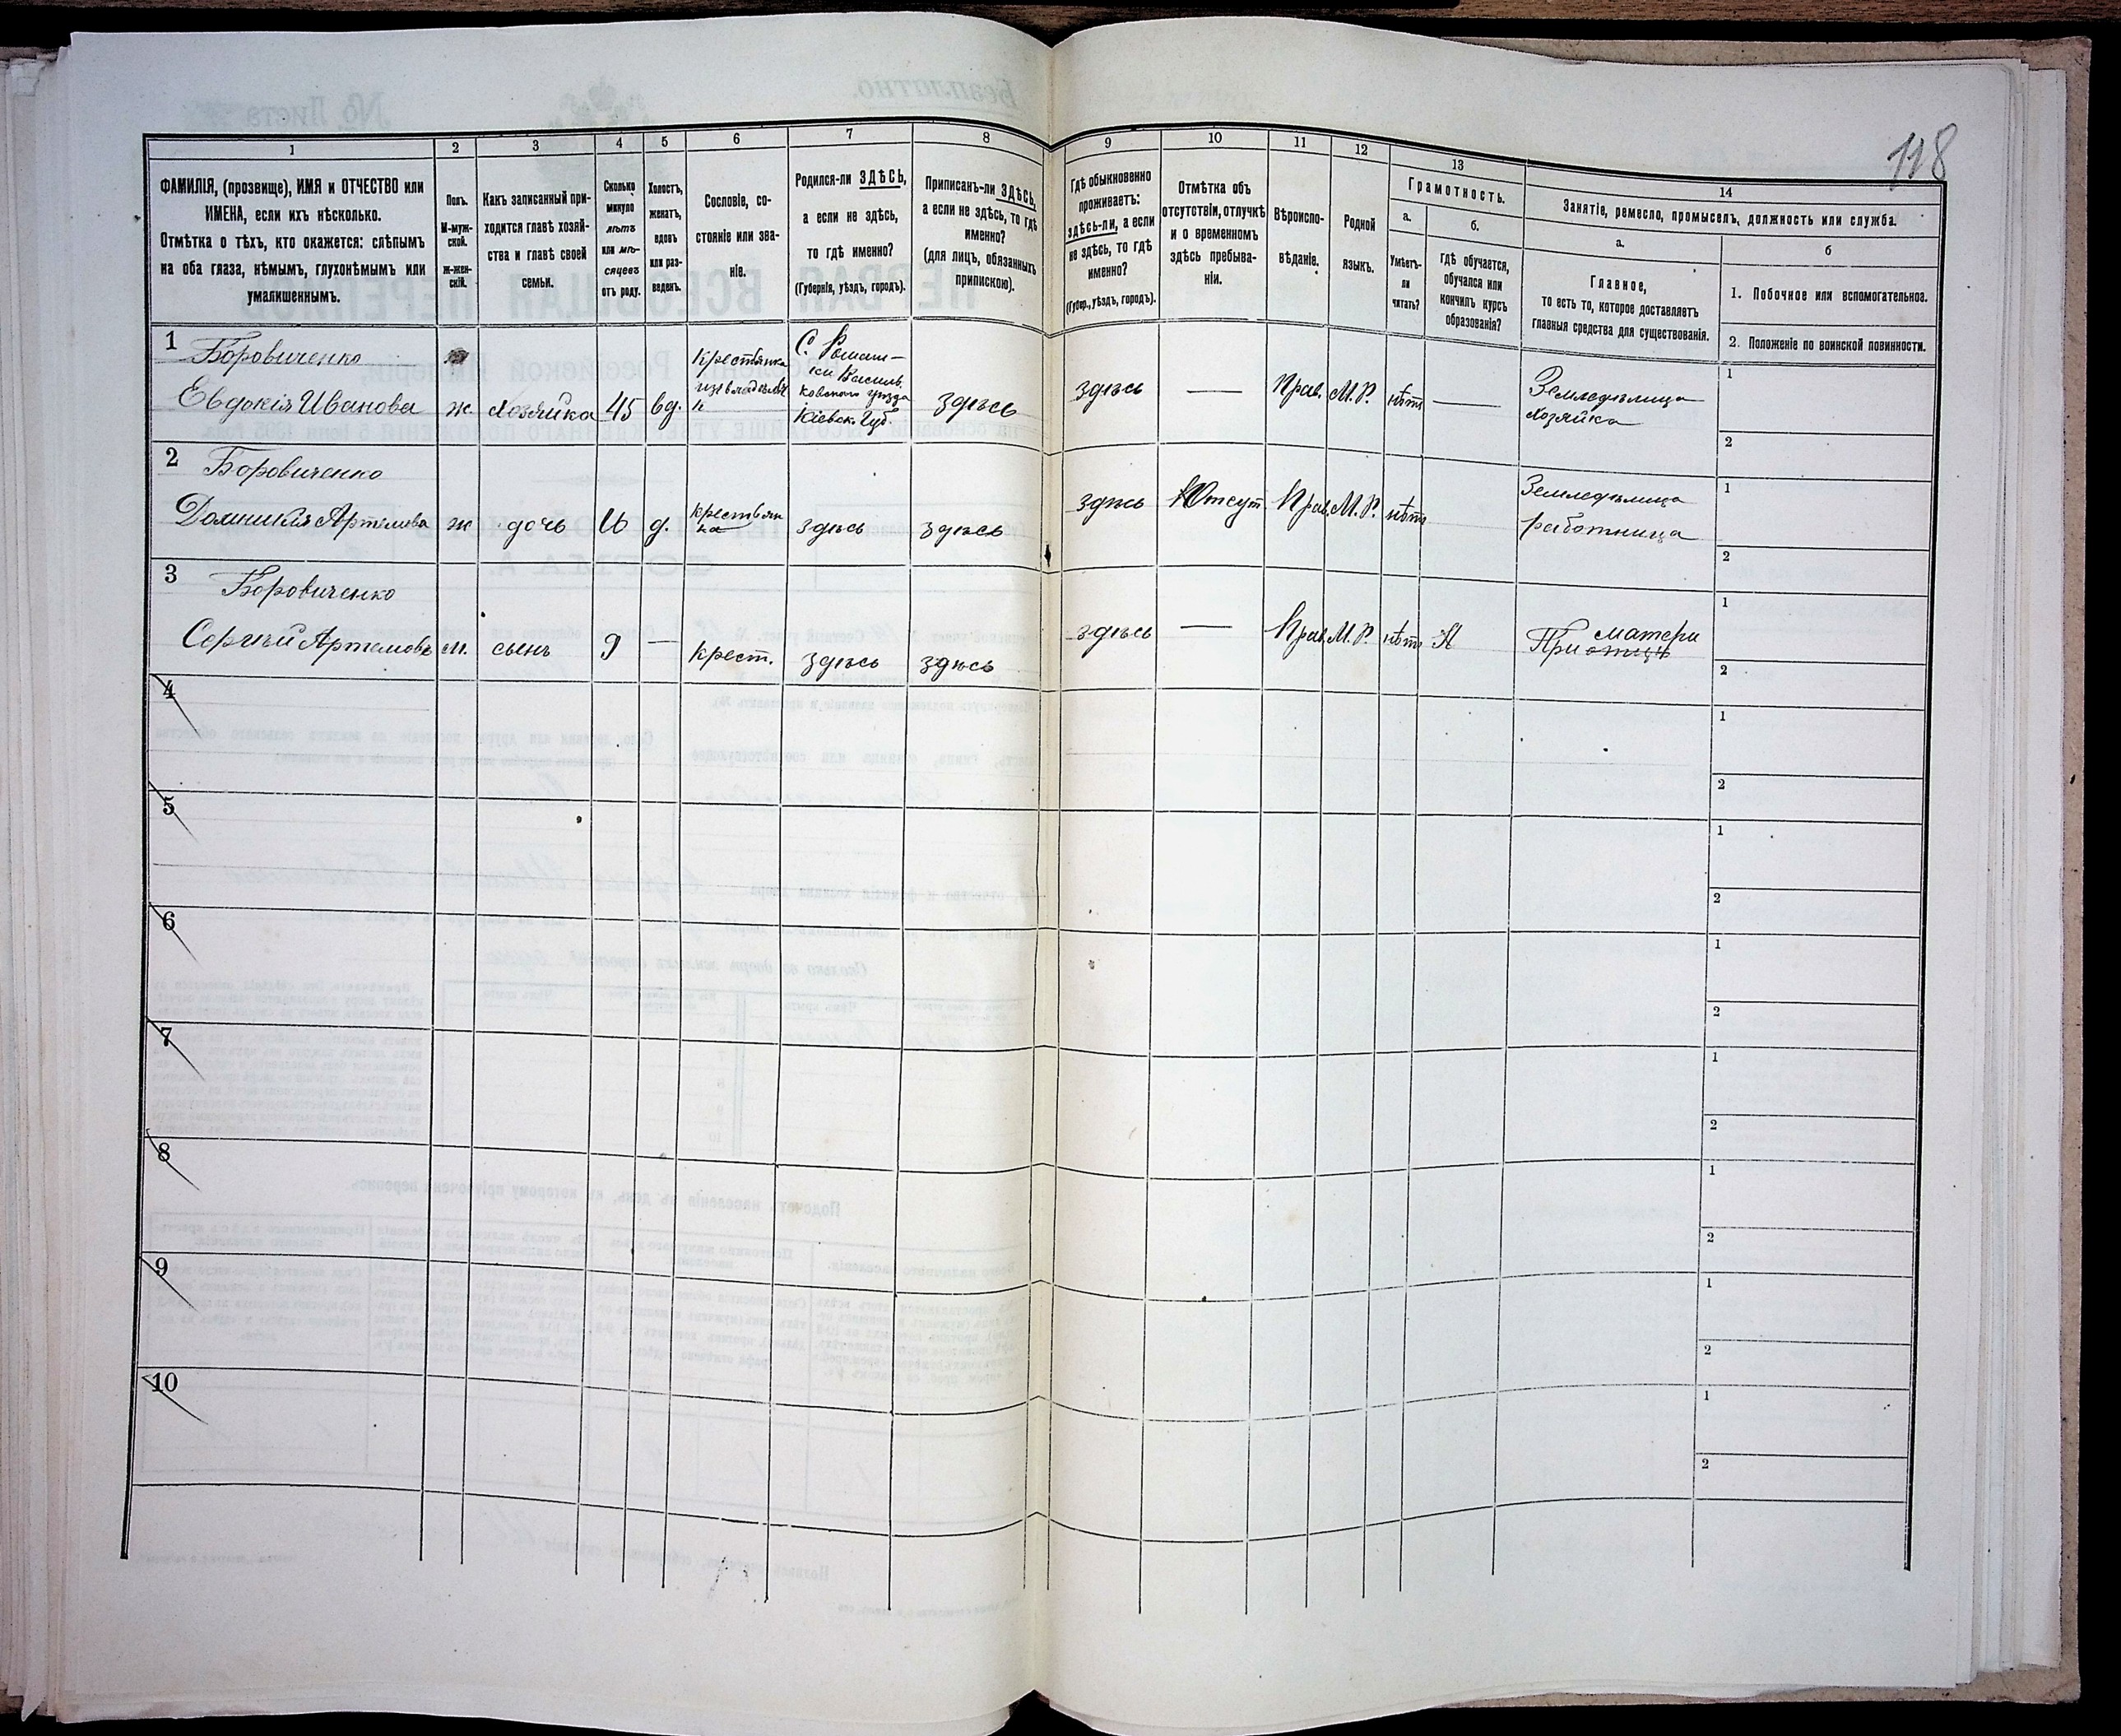 118
1
2
3
4
5
6
7
8
9
10
11
12
13
14
ФАМИЛІЯ, (прозвище), ИМЯ и ОТЧЕСТВО или
ИМЕНА, если ихъ нѣсколько.
Отмѣтка о тѣхъ, кто окажется: слѣпымъ
на оба глаза, нѣмымъ, глухонѣмымъ или
умалишеннымъ.
Полъ.
М-муж-
ской.
ж-жен-
скій.
Какъ записанный при-
ходится главѣ хозяй-
ства и главѣ своей
семьи.
Сколько
минуло
лѣтъ
или мѣ-
сяцевъ
отъ роду.
Холостъ,
женатъ,
вдовъ
или раз-
веденъ.
Сословіе, со-
стояніе или зва-
ніе.
Родился-ли ЗДѢСЬ,
а если не здѣсь,
то гдѣ именно?
(Губернія, уѣздъ, городъ).
Приписанъ-ли ЗДѢСЬ,
а если не здѣсь, то гдѣ
именно?
(для лицъ, обязанныхъ
припискою).
Гдѣ обыкновенно
проживаетъ:
здѣсь-ли, а если
не здѣсь, то гдѣ
именно?
(Губер., уѣздъ, городъ).
Отмѣтка объ
отсутствіи, отлучкѣ
и о временномъ
здѣсь пребыва-
ніи.
Вѣроиспо-
вѣданіе.
Родной
языкъ.
Грамотность.
а.
Умѣетъ-
ли
читать?
б.
гдѣ обучается,
обучался или
кончилъ курсъ
образованія?
Занятіе, ремесло, промыселъ, должность или служба.
а.
Главное,
то есть то, которое доставляетъ
главныя средства для существованія.
б
1. Побочное или вспомогательное.
2. Положеніе по воинской повинности.
1
Боровиченко
Евдокія Иванова
ж.
хозяйка
45
вд.
Крестьянка
С. Ромаш-
ки Васильк-
ковского уезда
Кіевск. Губ.
здѣсь
здѣсь
—
Прав.
М.Р.
нѣт
—
Земледѣлица
хозяйка
1
2
2
Боровиченко
Домникія Артемова
ж
дочь
16
д.
крестьян
ка
здѣсь
здѣсь
здѣсь
Отсут
Прав.
М.Р.
нѣт
Земледѣлица
работница
1
2
3
Боровиченко
Сергѣй Артемовъ
м.
сынъ
9
—
крест.
здѣсь
здѣсь
здѣсь
—
Прав.
М.Р.
нѣт
матери
При отцѣ
1
2
4
1
2
5
1
2
6
1
2
7
1
2
8
1
2
9
1
2
10
1
2